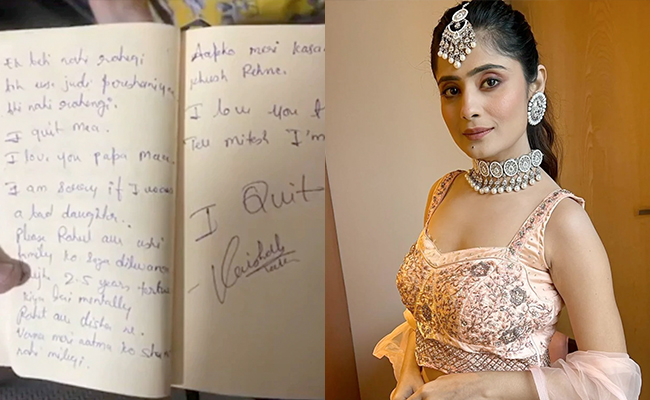 Ek beti nahi rahegi
toh usse judi pereshaniya
bhi nahi rahengi.
I quit maa.
I love you papa maa.
I am sorry if I was
a bad daughter.
please Rahul aur uski
family ko saja dilwana
2.5 years
kiya hai mentally
Rahul aur disha ne.
Varna meri aatma ko
nahi milegi.
Aapko meri
khush Rehna.
I love you
Tell mitesh I'm
I Quit
Vaishali